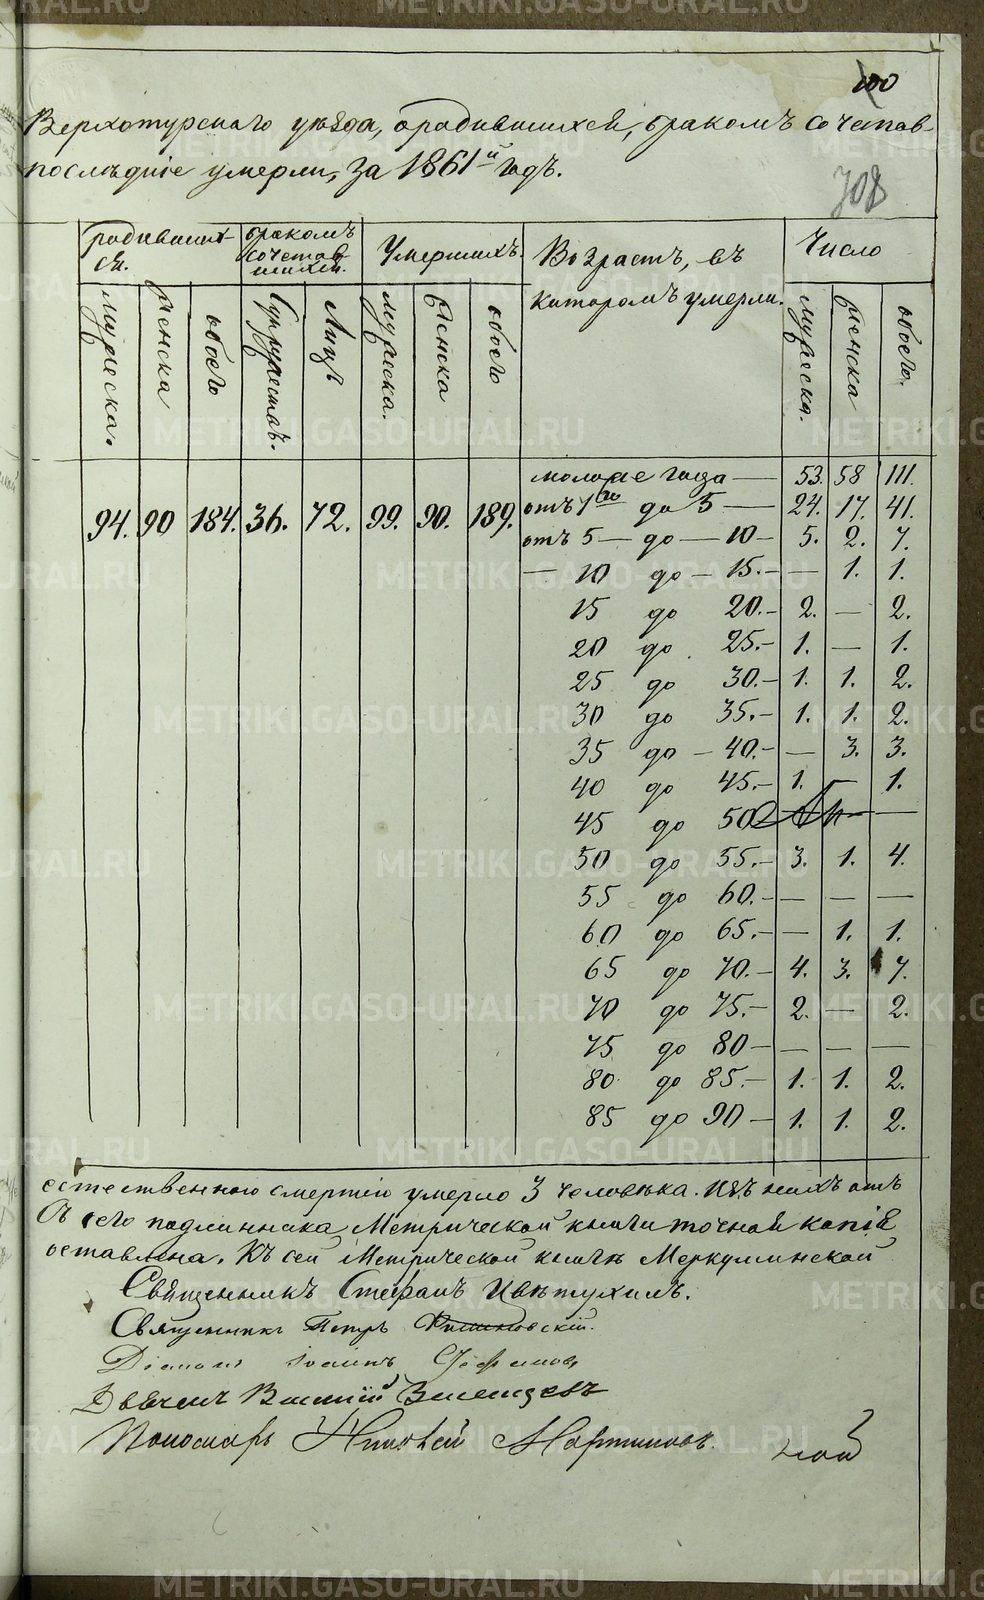 100
Верхотурскаго уѣзда, о родившихся, бракомъ сочетав-
послѣдніе умерли, за 1861й годъ.
708
родивших- бракомъ Умершихъ. Возрастъ, въ Число
ся. сочетав- которомъ умерли.
шихся.
мужеска. женска обоего Супружествъ. Лицъ мужеска. женска обоего мужеска. женска обоего.
моложе года — 53. 58 111.
94. 90 184. 36. 72. 99. 90. 189. отъ 1го до 5 — 24. 17. 41.
отъ 5 — до — 10 — 5. 2. 7.
— 10 до — 15. — — 1. 1.
15 до 20. — 2. — 2.
20 до 25. — 1. — 1.
25 до 30. — 1. 1. 2.
30 до 35. — 1. 1. 2.
35 до — 40. — — 3. 3.
40 до 45. — 1. — 1.
45 до 50 —
50 до 55. — 3. 1. 4.
55 до 60. — — — —
60 до 65. — — 1. 1.
65 до 70. — 4. 3. 7.
70 до 75. — 2. — 2.
75 до 80 — — — —
80 до 85. — 1. 1. 2.
85 до 90 — 1. 1. 2.
естественною смертію умерло 3 человѣка. Изъ нихъ отъ
Съ сего подлинника Метрической книги точная копія
оставлена. Къ сей Метрической книгѣ Меркушинской
Священникъ Стефанъ Цвѣтухинъ.
Священникъ Петръ
Діаконъ Іоаннъ
Дьячекъ Василій
Пономарь Мартиновъ.
ной
METRIKI.GASO-URAL.RU